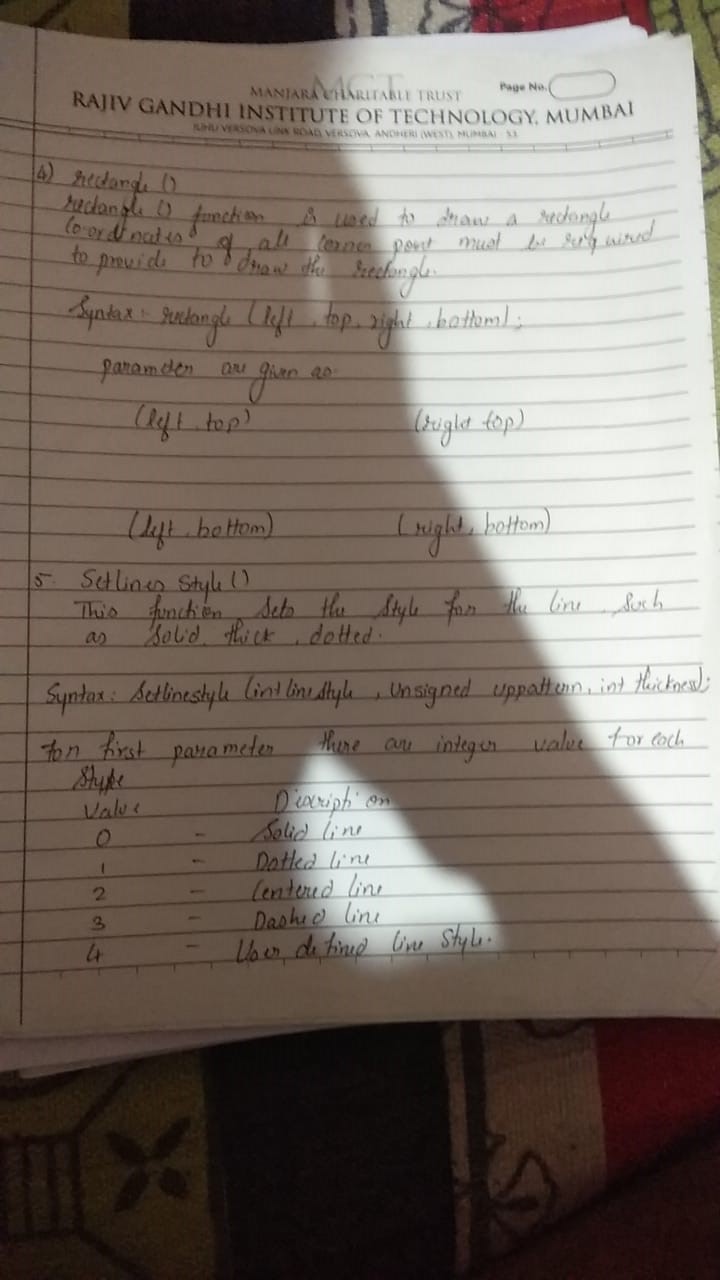 MCT
MANJARA CHARITABLE TRUST
Page No.
RAJIV GANDHI INSTITUTE OF TECHNOLOGY, MUMBAI
JUHU VERSOVA LINK ROAD, VERSOVA, ANDHERI (WEST), MUMBAI - 53
4) rectangle ()
rectangle () function is used to draw a rectangle
Co-ordinates of all corner point must be required
to provide to draw the rectangle.
Syntax :- rectangle (left, top, right, bottom);
parameter are given as
(left, top) (right top)
(left, bottom) (right, bottom)
5. Setlines Style ()
This function sets the style for the line such
as Solid, thick, dotted.
Syntax: Setlinestyle (int linestyle, Unsigned uppattern, int thickness);
for first parameter there are integer value for each
Style
Value Discription
0 - Solid line
1 - Dotted line
2 - Centered line
3 - Dashed line
4 - User defined line Style.